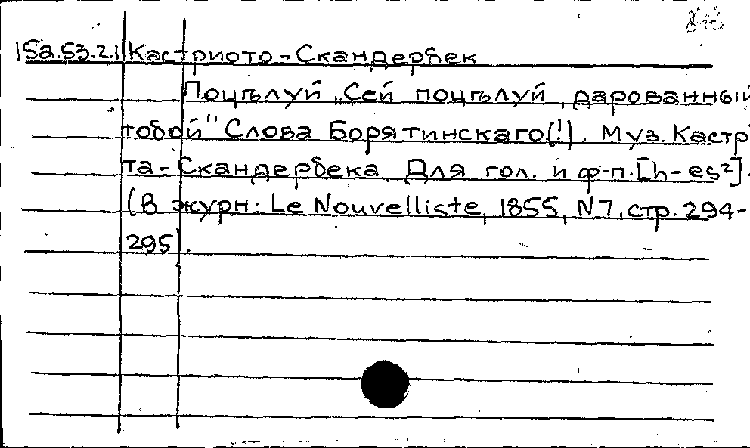 15a.53.2.1 Кастриото-Скандербек
Поцѣлуй „Сей поцѣлуй, дарованный
тобой" Слова Борятинскаго(!). Муз. Кастр
та-Скандербека. Для гол. и ф-п. [h-es²].
(В журн: Le Nouvelliste, 1855, N7, стр. 294-
295).